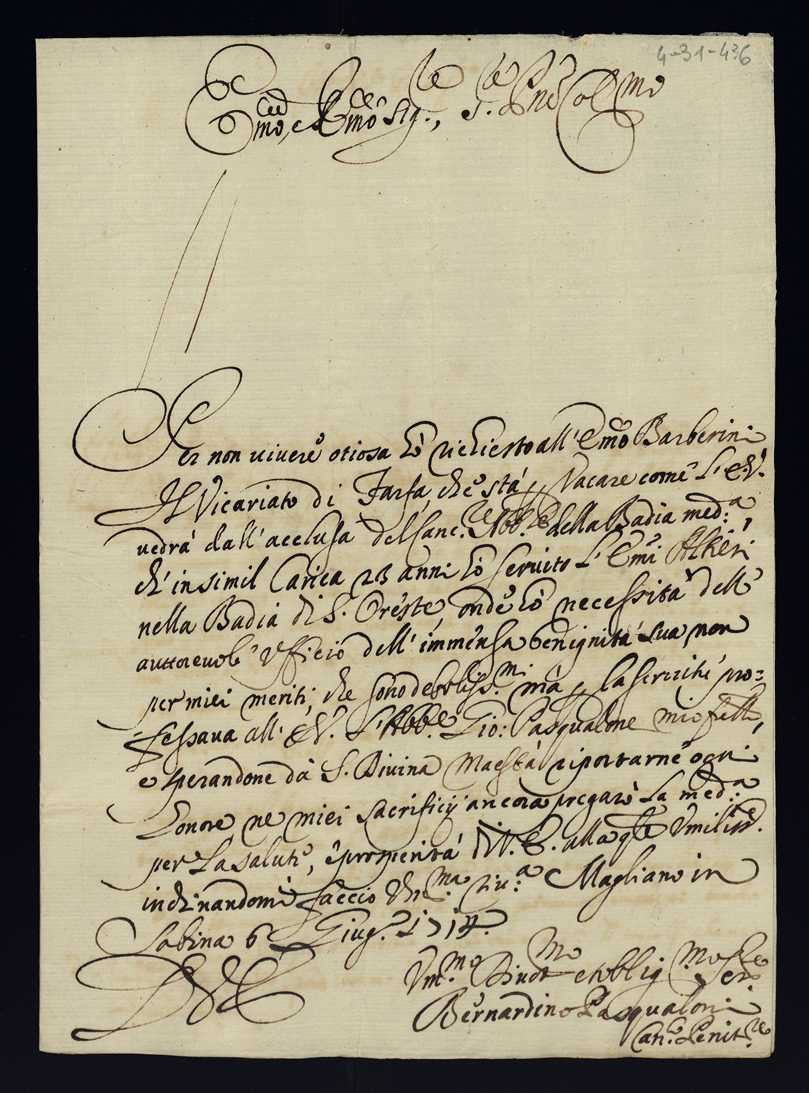 4-31-436
Em̃o, e R̃mo Sig.re, S.re P.ne Col.mo
Per non vivere otiosa hò richiesto all'Em̃o Barberini
Il Vicariato di Farfa, che stà p Vacare come L'E.V.
vedrà dall'acclusa del Canc.re Abb.le della Badia med.a,
ch'in simil Carica 23 anni hò servito L'Em̃i Altieri
nella Badia di S. Oreste, onde hò necessità dell'
auttorevole Ufficio dell'immensa benignità sua, non
per miei meriti, che sono deboliss.mi mà p la servitù pro=
fessava all'E.V. l'Abb.e Gio: Pasqualone mio fr̃ello,
e sperandone dà S. Divina Maestà riportarne ogni
honore ne miei sacrificij ancora pregarò la med.a
per la salute, e prosperità di V.E. alla qle Umiliss.
inchinandomi faccio Um.ma riv.a Magliano in
Sabina 6 Giug.o 1714
D.V.E.
Um.mo Divot.mo et oblig.mo Ser.re
Bernardino Pasqualoni
Can.co Penit.re